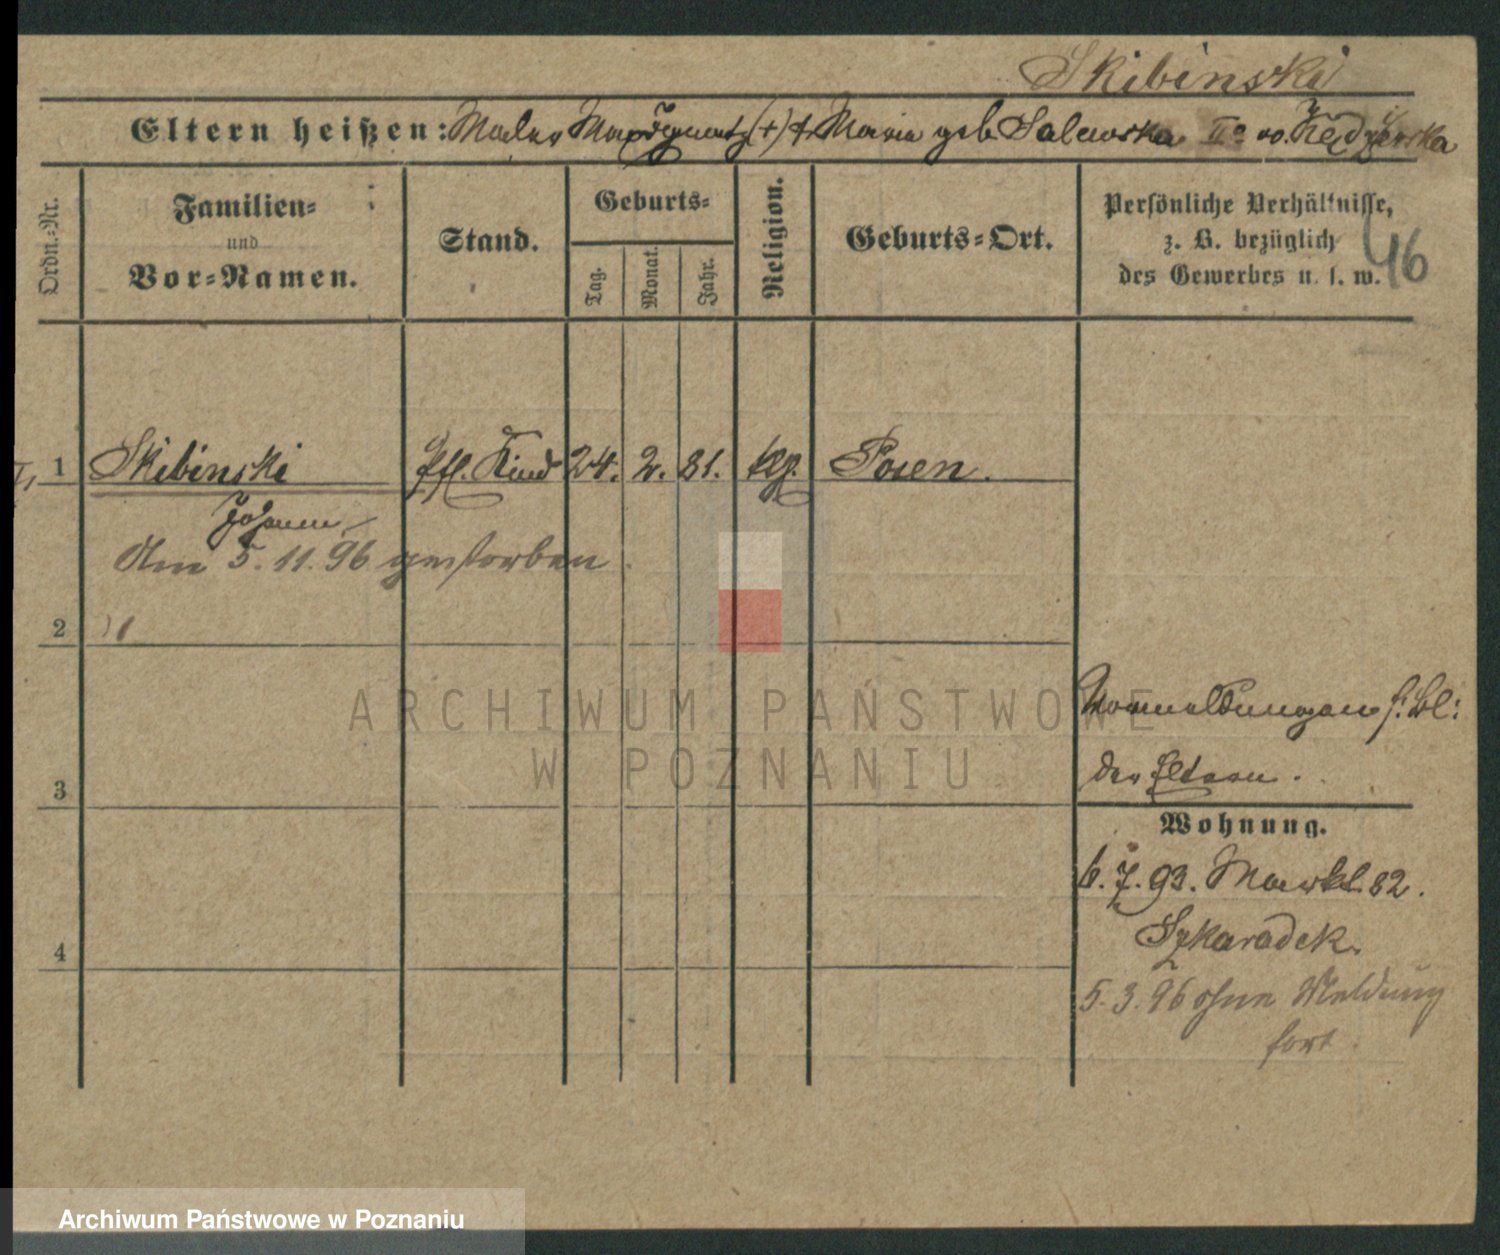 Skibinski
Eltern heißen: Maler Ignatz (+) & Maria geb. Salewska IIo vo.
Ordn.-Nr.
Familien-
und
Vor-Namen.
Stand.
Geburts-
Tag.
Monat.
Jahr.
Religion.
Geburts-Ort.
Persönliche Verhältnisse,
z. B. bezüglich
des Gewerbes u. s. w.
46
1 Skibinski Pfl. Kind 24. 2. 81. kg. Posen.
Johann
Am 5.11.96 gestorben.
2
3
4
Anmeldungen s. Bl:
der Eltern.
Wohnung.
6.7.93. Markt 82.
Szkaradek.
5.3.96 ohne Meldung
fort.
ARCHIWUM PAŃSTWOWE
W POZNANIU
Archiwum Państwowe w Poznaniu